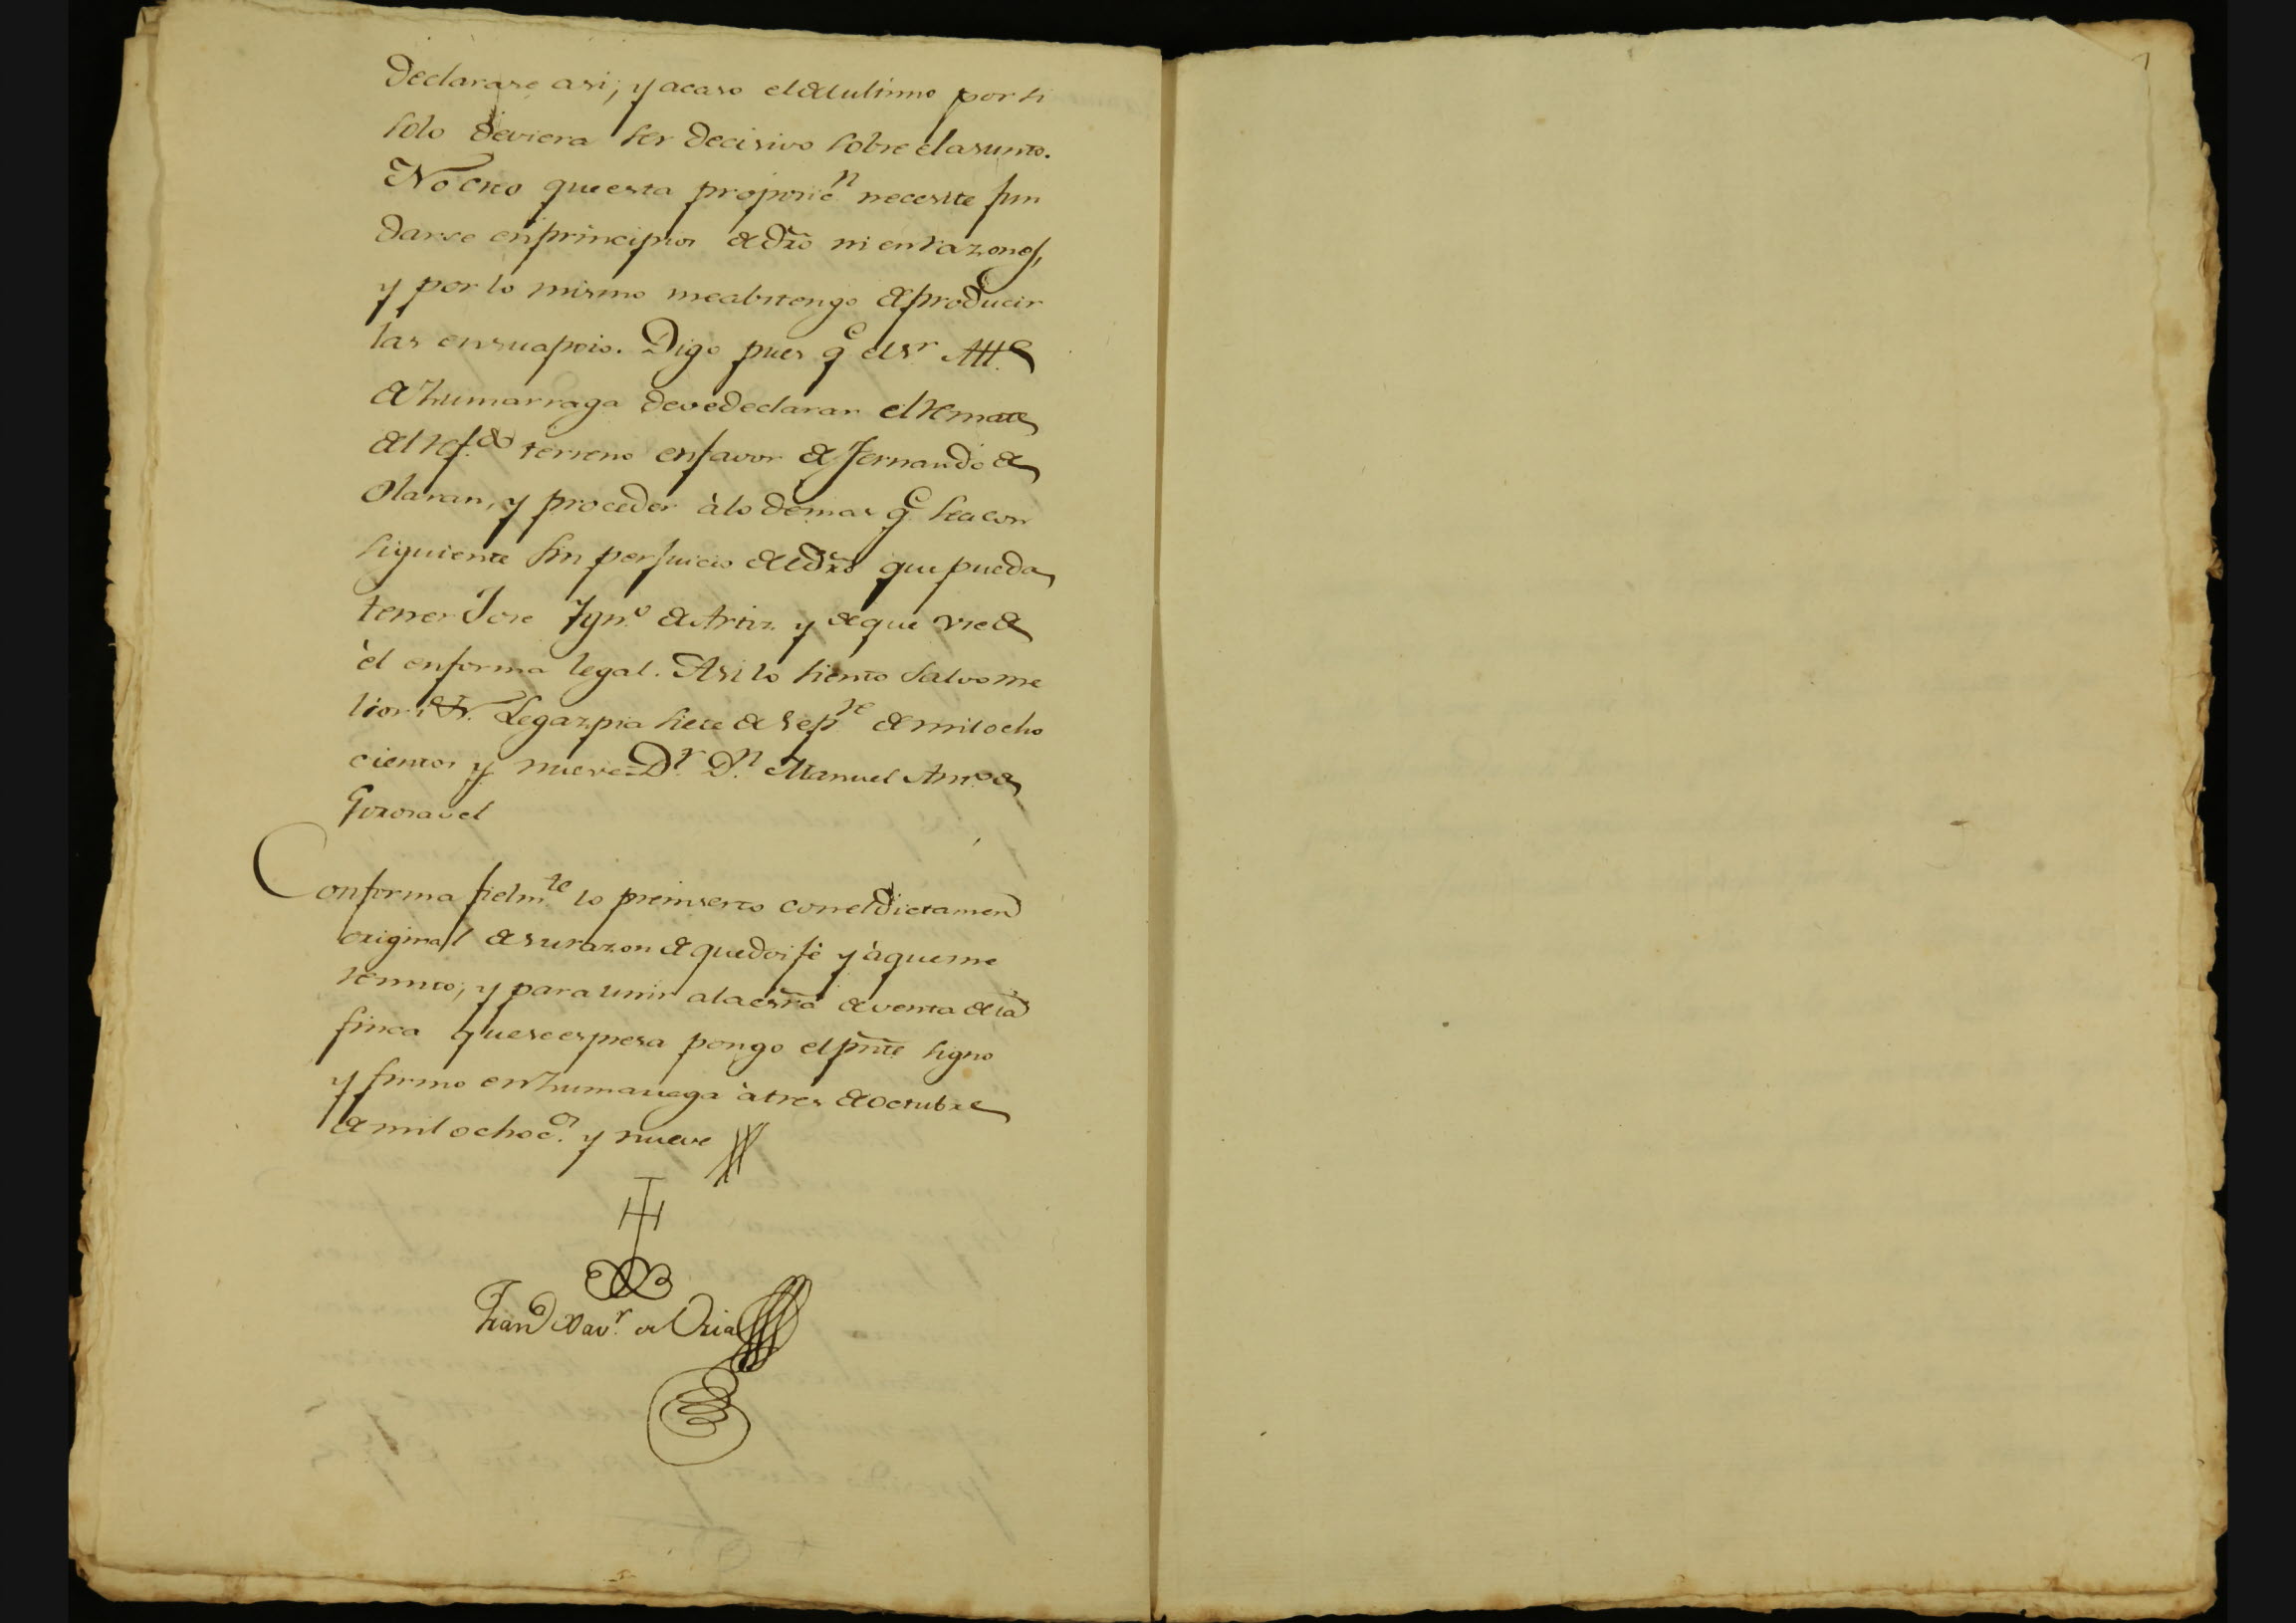 declarase asi, y acaso el de ultimo por si
solo deviera ser decisivo sobre el asunto.
No creo que esta proposicn necesite fun
darse en principios de dro ni en razones,
y por lo mismo me abstengo de producir
las en su apoio. Digo pues qe el Sr Alle
de Zhumarraga deve declarar el remate
del refdo terreno en favor de Fernando de
Olaran, y proceder à lo demas qe sea con
siguiente sin perjuicio del dro que pueda
tener Jose Igno de Artiz y de que use de
èl en forma legal. Asi lo siento salvo me
liori &. Legazpia siete de Sepre de mil ocho
cientos y nueve = Dr. Dn. Manuel Anto de
Gorosavel
Conforma fielmte lo preinserto con el dictamen
original de su razon de que doi fè y à que me
remito; y para unir a la esrra de venta de la
finca que se espresa pongo el prnte signo
y firmo en Zhumarraga à tres de octubre
de mil ochocs. y nueve
Fran Xavr. de Oria